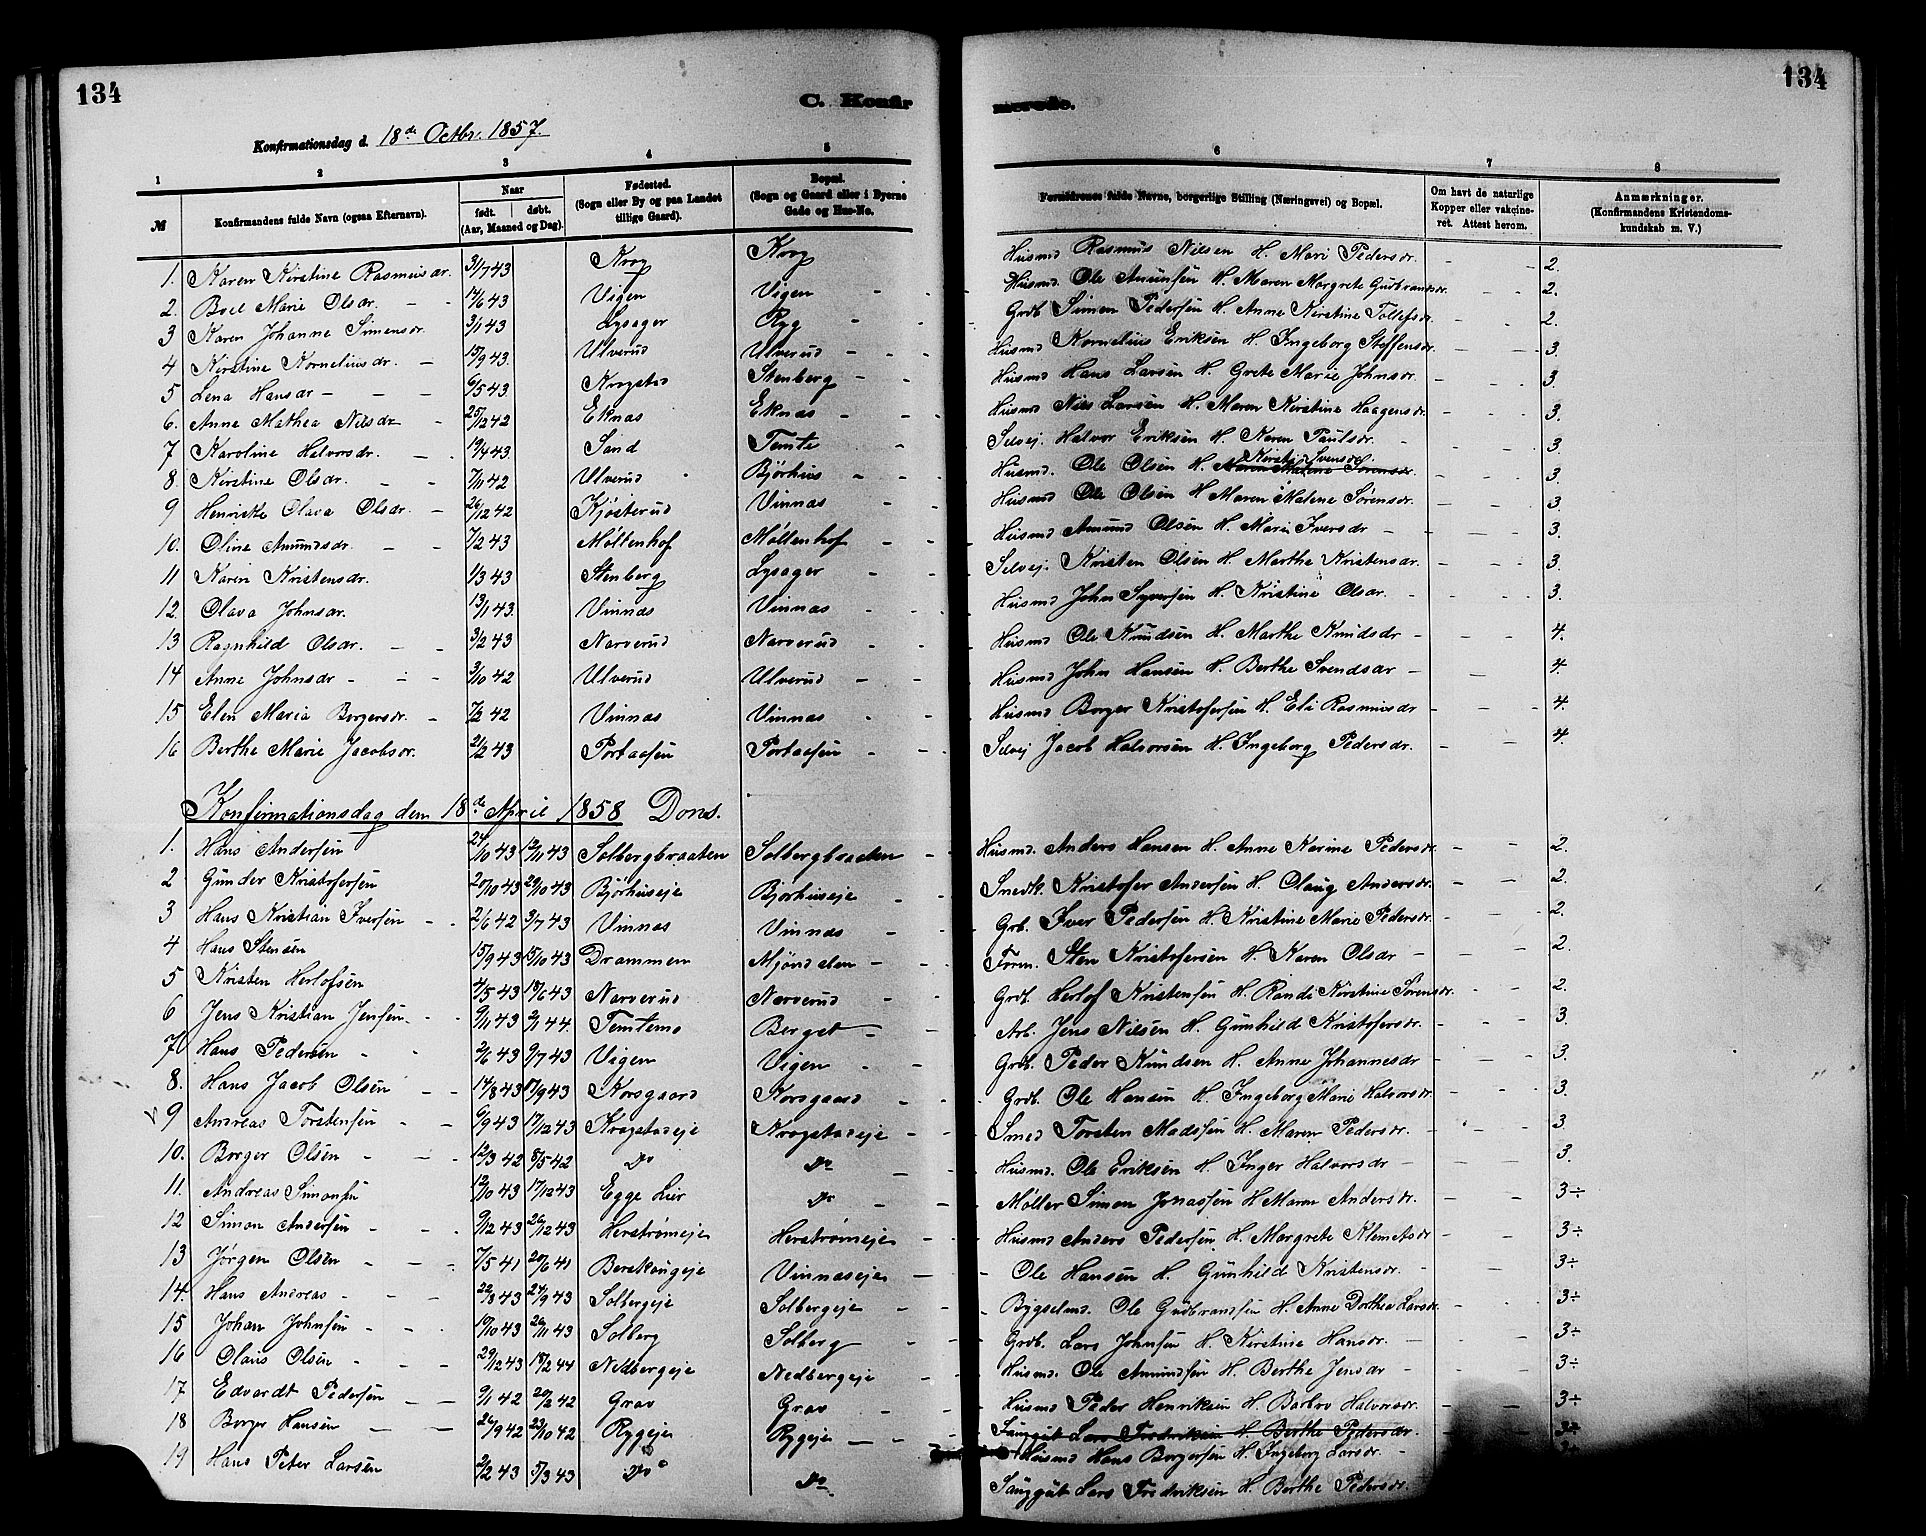 134
C. Konfir
merede.
134
Konfirmationsdag d. 18de Octbr. 1857.
1 2 3 4 5 6 7 8
№ Konfirmandens fulde Navn (ogsaa Efternavn). Naar født. døbt. (Aar, Maaned og Dag). Fødested. (Sogn eller By og paa Landet tillige Gaard). Bopæl. (Sogn og Gaard eller i Byerne Gade og Hus-No. Forældrenes fulde Navne, borgerlige Stilling (Næringsvei) og Bopæl. Om havt de naturlige Kopper eller vakcineret. Attest herom. Anmærkninger. (Konfirmandens Kristendomskundskab m. V.)
1. Karen Kirstine Rasmusdr. 31/7 43 Krog Krog Husmd Rasmus Nilsen H. Mari Pedersdr. - - 2.
2. Boel Marie Olsdr. - - 14/6 43 Vigen Vigen - Husmd. Ole Amunsen H. Maren Margrete Gudbrandsdr. - - 2.
3 Karen Johanne Simensdr. 3/1 43 Lysager Ryg - Grdb. Simen Pedersen H. Anne Kirstine Tollefsdr. - - 2.
4 Kirstine Kornelius dr. - 15/9 43. Ulverud Ulverud - - Husmd Kornelius Eriksen H. Ingeborg Steffensdr. - - 3.
5 Lena Hansdr - - - 6/5 43 Krogstad Stenberg - - Husmd Hans Larsen H. Grete Marie Johnsdr. - - 3.
6. Anne Mathea Nilsdr - 25/12 42 Eknas Eknas - - Husmd Nils Larsen H. Maren Kirstine Haagensdr. - - 3.
7 Karoline Halvorsdr. - - 19/4 43 Sand Temte - Selvej. Halvor Eriksen H. Karen Paulsdr. - - 3.
8 Kirstine Olsdr. - - 7/11 42 Ulverud Bjørhus - - Husmd. Ole Olsen H. Maren Malene Sørensdr. Kirsti Svensdr. - - 3.
9 Henrikke Olava Olsdr. - 26/12 42 Kjøsterud Vinnas - Husmd Ole Olsen H Maren Malene Sørensdr. - - 3.
10. Oline Amundsdr. - - 7/2 43 Møllenhof Møllenhof - - Husmd Amund Olsen H. Mari Iversdr - - - 3.
11 Karen Kristensdr. 1/3 43 Stenberg Lysager - Selvej. Kristen Olsen H. Marthe Kristensdr. - - 3.
12. Olava Johnsdr. 13/1 43. Vinnas Vinnas - - Husmd John Syversen H. Kristine Olsdr. - - 3.
13 Ragnhild Olsdr. - - 3/2 43 Narverud Narverud - - Husmd Ole Knudsen H. Marthe Knudsdr - - - 4.
14 Anne Johnsdr - - - 3/10 42 Ulverud Ulverud - - Husmd John Hansen H. Berthe Svendsdr - - - 4.
15 Elen Maria Borgersdr. - 7/2 42 Vinnas Vinnas - - Husmd Borger Kristofersen H. Eli Rasmusdr - - - 4.
16 Berthe Marie Jacobsdr. 2/2 43 Portaasen Portaasen - - Selvej Jacob Halvorsen H. Ingeborg Pedersdr. - - 4.
Konfirmationsdag den 18de April 1858 Dond.
1. Hans Andersen 24/10 43 12/11 43 Solbergbraaten Solbergbraaten - Husmd. Anders Hansen H. Anne Karine Pedersdr. - - 2.
2 Gunder Kristofersen 20/10 43 29/10 43 Bjørhuseje Bjørhuseje - Snedk. Kristofer Andersen H. Olaug Andersdr. - - 2.
3 Hans Kristian Iversen - - 2/6 42 3/7 43 Vinnas Vinnas - Grb. Iver Pedersen H. Kristine Marie Pedersdr. - - 2.
4 Hans Stensen 15/9 43 15/10 43 Drammen Mjøndalen - - Sten Kristofersen H. Karen Olsdr - - 2.
5 Kristen Herlofsen 4/5 43 18/6 43 Narverud Narverud - Grdb. Herlof Kristensen H. Randi Kirstine Sørensdr. - - 2.
6 Jens Kristian Jensen - - 9/11 43 2/1 44. Temtemo Berget - - Arb. Jens Nilsen H. Gunhild Kristofersdr. - - 3.
7 Hans Pedersen - - 2/6 43 9/7 43 Vigen Vigen - Grdb. Peder Knudsen H. Anne Johannesdr - - - 3.
8. Hans Jacob Olsen - - 14/8 43 17/9 43 Korsgaard Korsgaard - Grdb. Ole Hansen H. Ingeborg Marie Halvorsdr. - - 3.
9 Andreas Torstensen - - 6/9 43 17/12 43 Krogstadeje Krogstadeje - Smed Torsten Madssen H. Maren Pedersdr. - - 3.
10. Borger Olsen - - - 12/3 42 8/5 42 Do Do - Husmd. Ole Eriksen H. Inger Halvorsdr - - 3.
11. Andreas Simonsen 12/10 43 17/12 43 Egge Lier Do - Møller Simon Jonassen H Maren Andersdr. - - 3÷
12 Simon Andersen - - 9/12 43 26/12 43 Herstrømseje Herstrømseje - Husmd Anders Pedersen H. Margrete Klemetsdr. - - 3÷
13 Jørgen Olsen - - 7/5 41 20/6 41 Berskougeje Vinnaseje - - Ole Hansen H. Gunhild Kristensdr. - 3÷
14. Hans Andreas - - - 22/8 43 24/9 43 Solbergeje Solbergeje - - Bygselmd. Ole Gudbrandsen H. Anne Dorthea Larsdr. - - 3÷
15 Johan Johnsen - - 19/10 43 26/11 43 Solberg Solberg - Grdb. Lars Johnsen H. Kirstine Hansdr. - 3÷
16 Olaus Olsen - - - 29/12 43 18/2 44 Nedbergeje Nedbergeje - Husmd. Ole Amundsen H. Berthe Jensdr - - 3÷
17 Edvardt Pedersen - - 9/1 42 20/2 42 Grav Grav - Husmd Peder Henriksen H. Barbro Halvorsdr. - - 3÷
18 Borger Hansen - - 26/9 42 23/10 42 Rygeje Rygeje - - Lars Fredriksen H. Berthe Pedersdr. 3÷
Husmd Hans Borgersen H. Ingeborg Larsdr. -
19 Hans Peter Larsen 2/2 43 5/3 43 Do Do Lars Fredriksen H. Berthe Pedersdr.